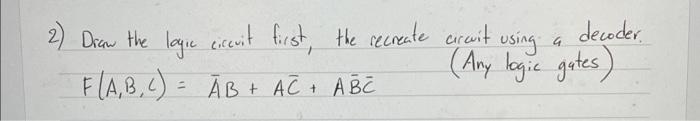 2) Draw the logic circuit first, the recreate circuit using a decoder.
(Any logic gates)
F(A,B,C) = A̅B + AC̅ + AB̅C̅